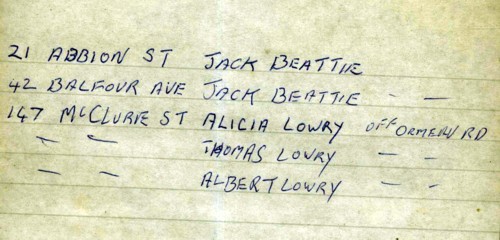 21 ALBION ST JACK BEATTIE
42 BALFOUR AVE JACK BEATTIE - -
147 McCLURE ST ALICIA LOWRY OFF ORMEAU RD
" " THOMAS LOWRY - -
- - ALBERT LOWRY - -